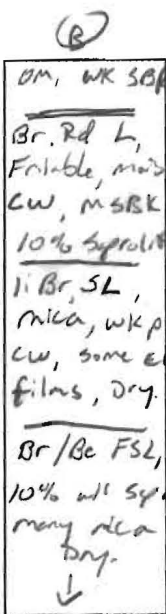 B
OM, WK SBK
Br. Rd L,
Friable, mois
CW, MSBK
10% Saprolit
li Br, SL,
mica, WK p
CW, some cl
films, Dry.
Br/Be FSL,
10% w/s Sap
many mica
Dry.